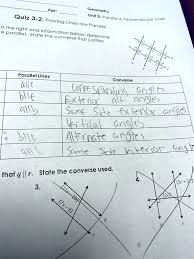 Per:
Geometry
Unit 3: Parallel & Perpendicular Lines
Quiz 3-2: Proving Lines are Parallel
o the right and information below, determine
e parallel. State the converse that justifies
Parallel Lines Converse
a||c Corresponding angles
b||e Exterior alt angles
a||b Same Side Exterior angles
Vertical angles
b||c Alternate angles
a||c Same Side interior angl
that q || r. State the converse used.
3.
4.